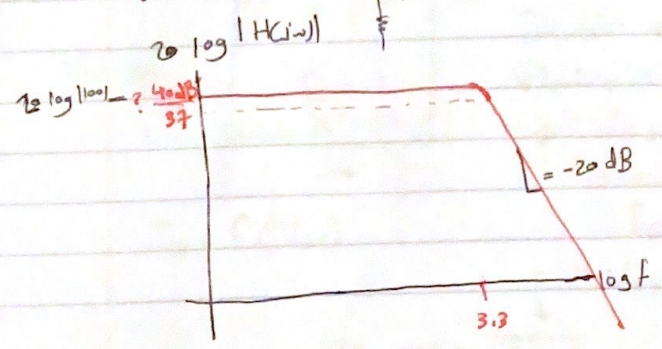 20 log |H(jω)|
20 log |100| → ? 40 dB
37
= -20 dB
log f
3.3